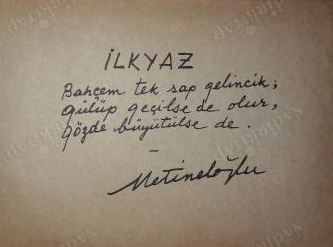 İLKYAZ
Bahçem tek sap gelincik;
gülüp geçilse de olur,
gözde büyütülse de.
—
Metineloğlu